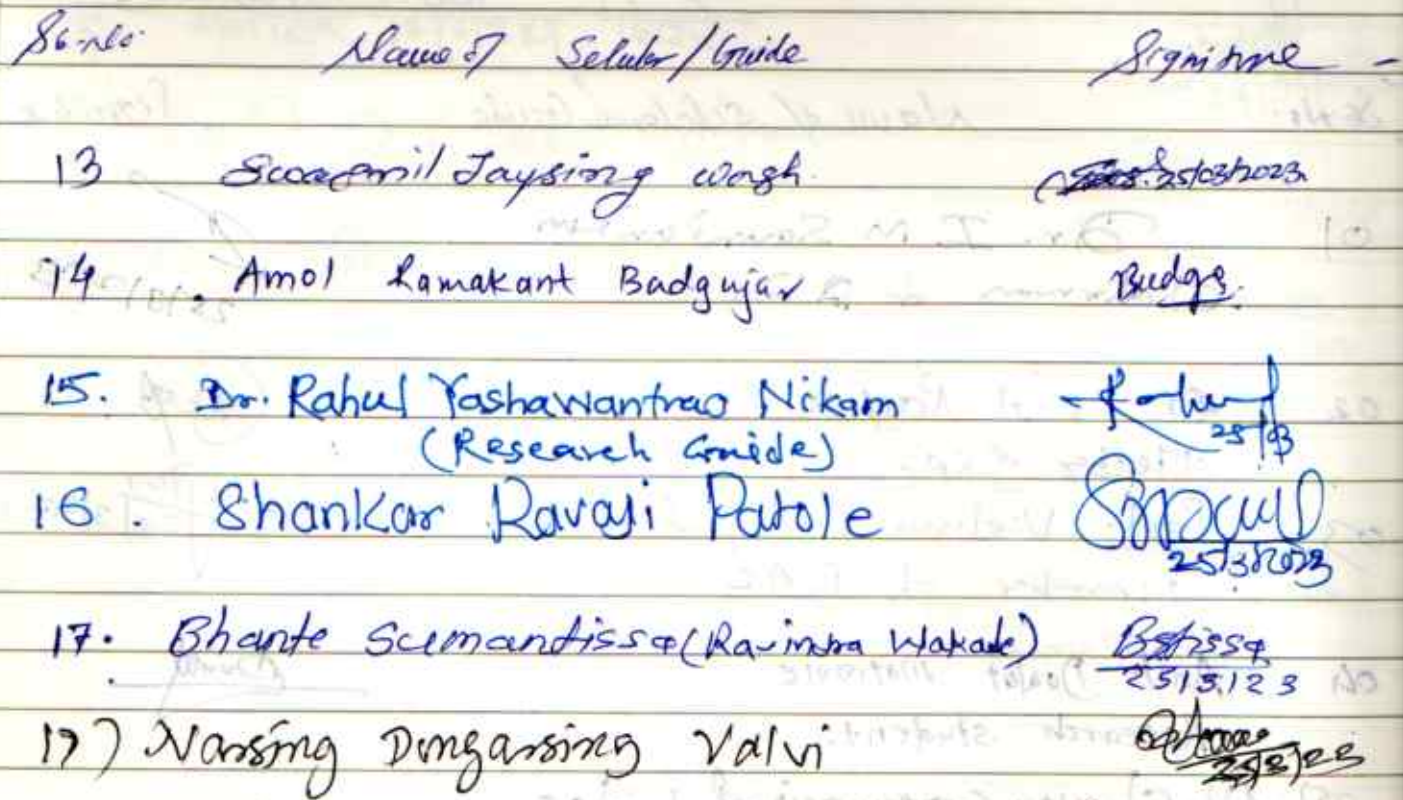 Sr. No. Name of Scholar/Guide Signature -
13 Swapnil Jaysing Wagh. 25/03/2023
14. Amol Ramakant Badgujar Budgs.
15. Dr. Rahul Yashawantrao Nikam Rahul
(Research Guide) 25/3
16. Shankar Ravaji Patole
25/3/2023
17. Bhante Sumantissa (Ravindra Wakade) Bstissa
25/3/23
17) Narsing Dongarsing Valvi
25/3/23